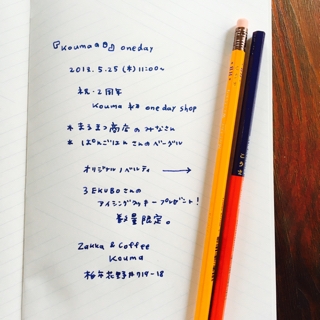 『Koumaの日』oneday
2013.5.25(木)11:00〜
祝・2周年
Kouma one day shop
*まるまつ商店のみなさん
*ぱんごはんさんのベーグル
オリジナルノベルティ →
3EKUBOさんの
アイシングクッキープレゼント!
数量限定。
Zakka & Coffee
Kouma
柏市花野井719-18
こうま